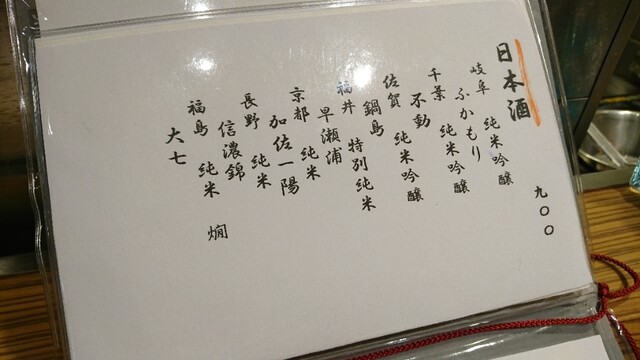 日本酒
九〇〇
岐阜 純米吟醸
ふかもり
千葉 純米吟醸
不動
佐賀 純米吟醸
鍋島
福井 特別純米
早瀬浦
京都 純米
加佐一陽
長野 純米
信濃錦
福島 純米 燗
大七